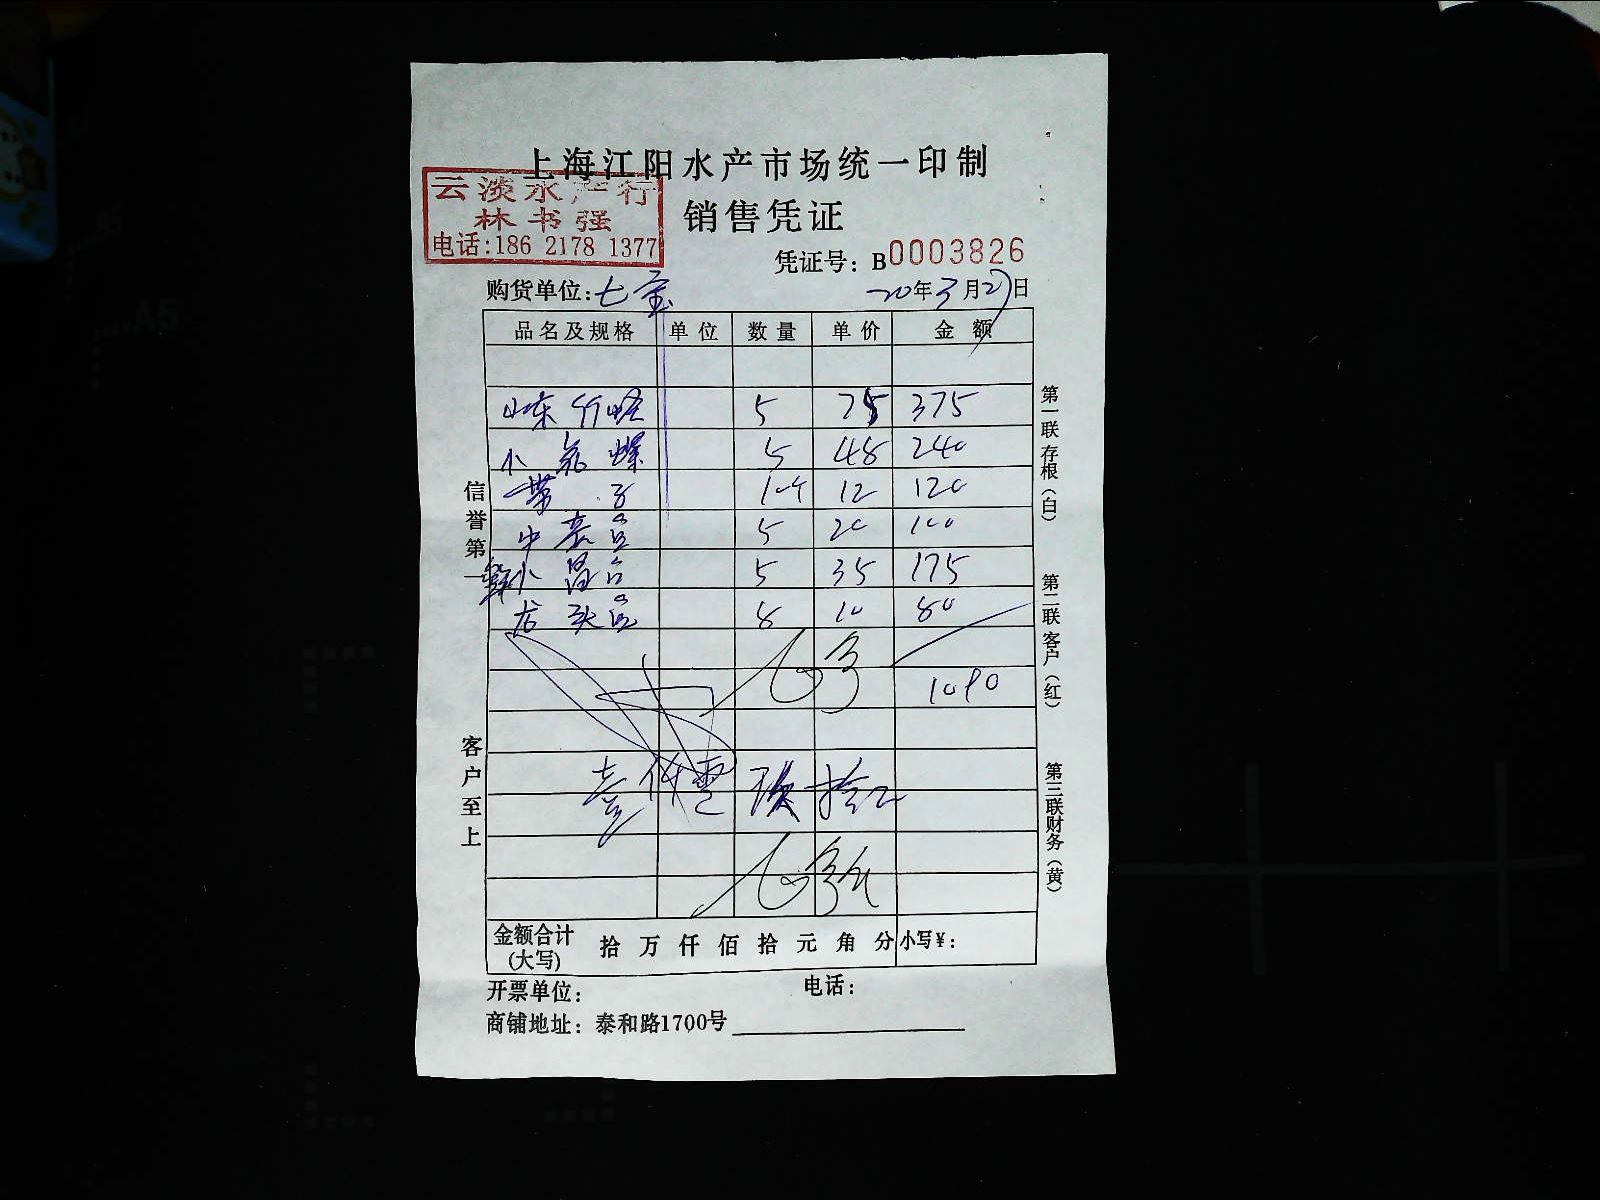 上海江阳水产市场统一印制
云淡水产行
林书强
电话:186 2178 1377
销售凭证
凭证号: B0003826
购货单位:七宝
20年3月27日
品名及规格 单位 数量 单价 金额
山东竹蛏 5 75 375
小花螺 5 48 240
带子 10个 12 120
中 5 20 100
小 5 35 175
龙头 8 10 80
1090
壹仟零玖拾元
金额合计(大写) 拾 万 仟 佰 拾 元 角 分 小写¥:
开票单位: 电话:
商铺地址: 泰和路1700号
信誉第一
客户至上
第一联存根(白)
第二联客户(红)
第三联财务(黄)